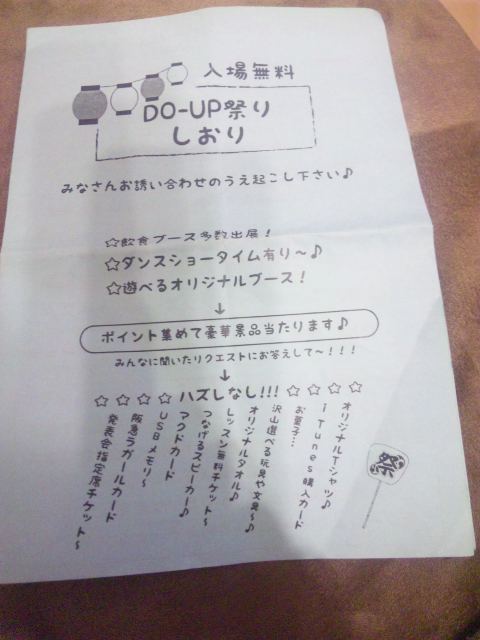 入場無料
DO-UP祭り
しおり
みなさんお誘い合わせのうえ起こし下さい♪
☆飲食ブース多数出展！
☆ダンスショータイム有り～♪
☆遊べるオリジナルブース！
↓
ポイント集めて豪華景品当たります♪
みんなに聞いたリクエストにお答えして～！！！
↓
☆☆☆☆ハズしなし!!!☆☆☆☆
オリジナルTシャツ♪
iTunes購入カード
お菓子…
沢山選べる玩具や文具～♪
オリジナルタオル♪
レッスン無料チケット～
つなげるスピーカー♪
マクドカード
USBメモリ～
阪急ラガールカード
発表会指定席チケット～
祭